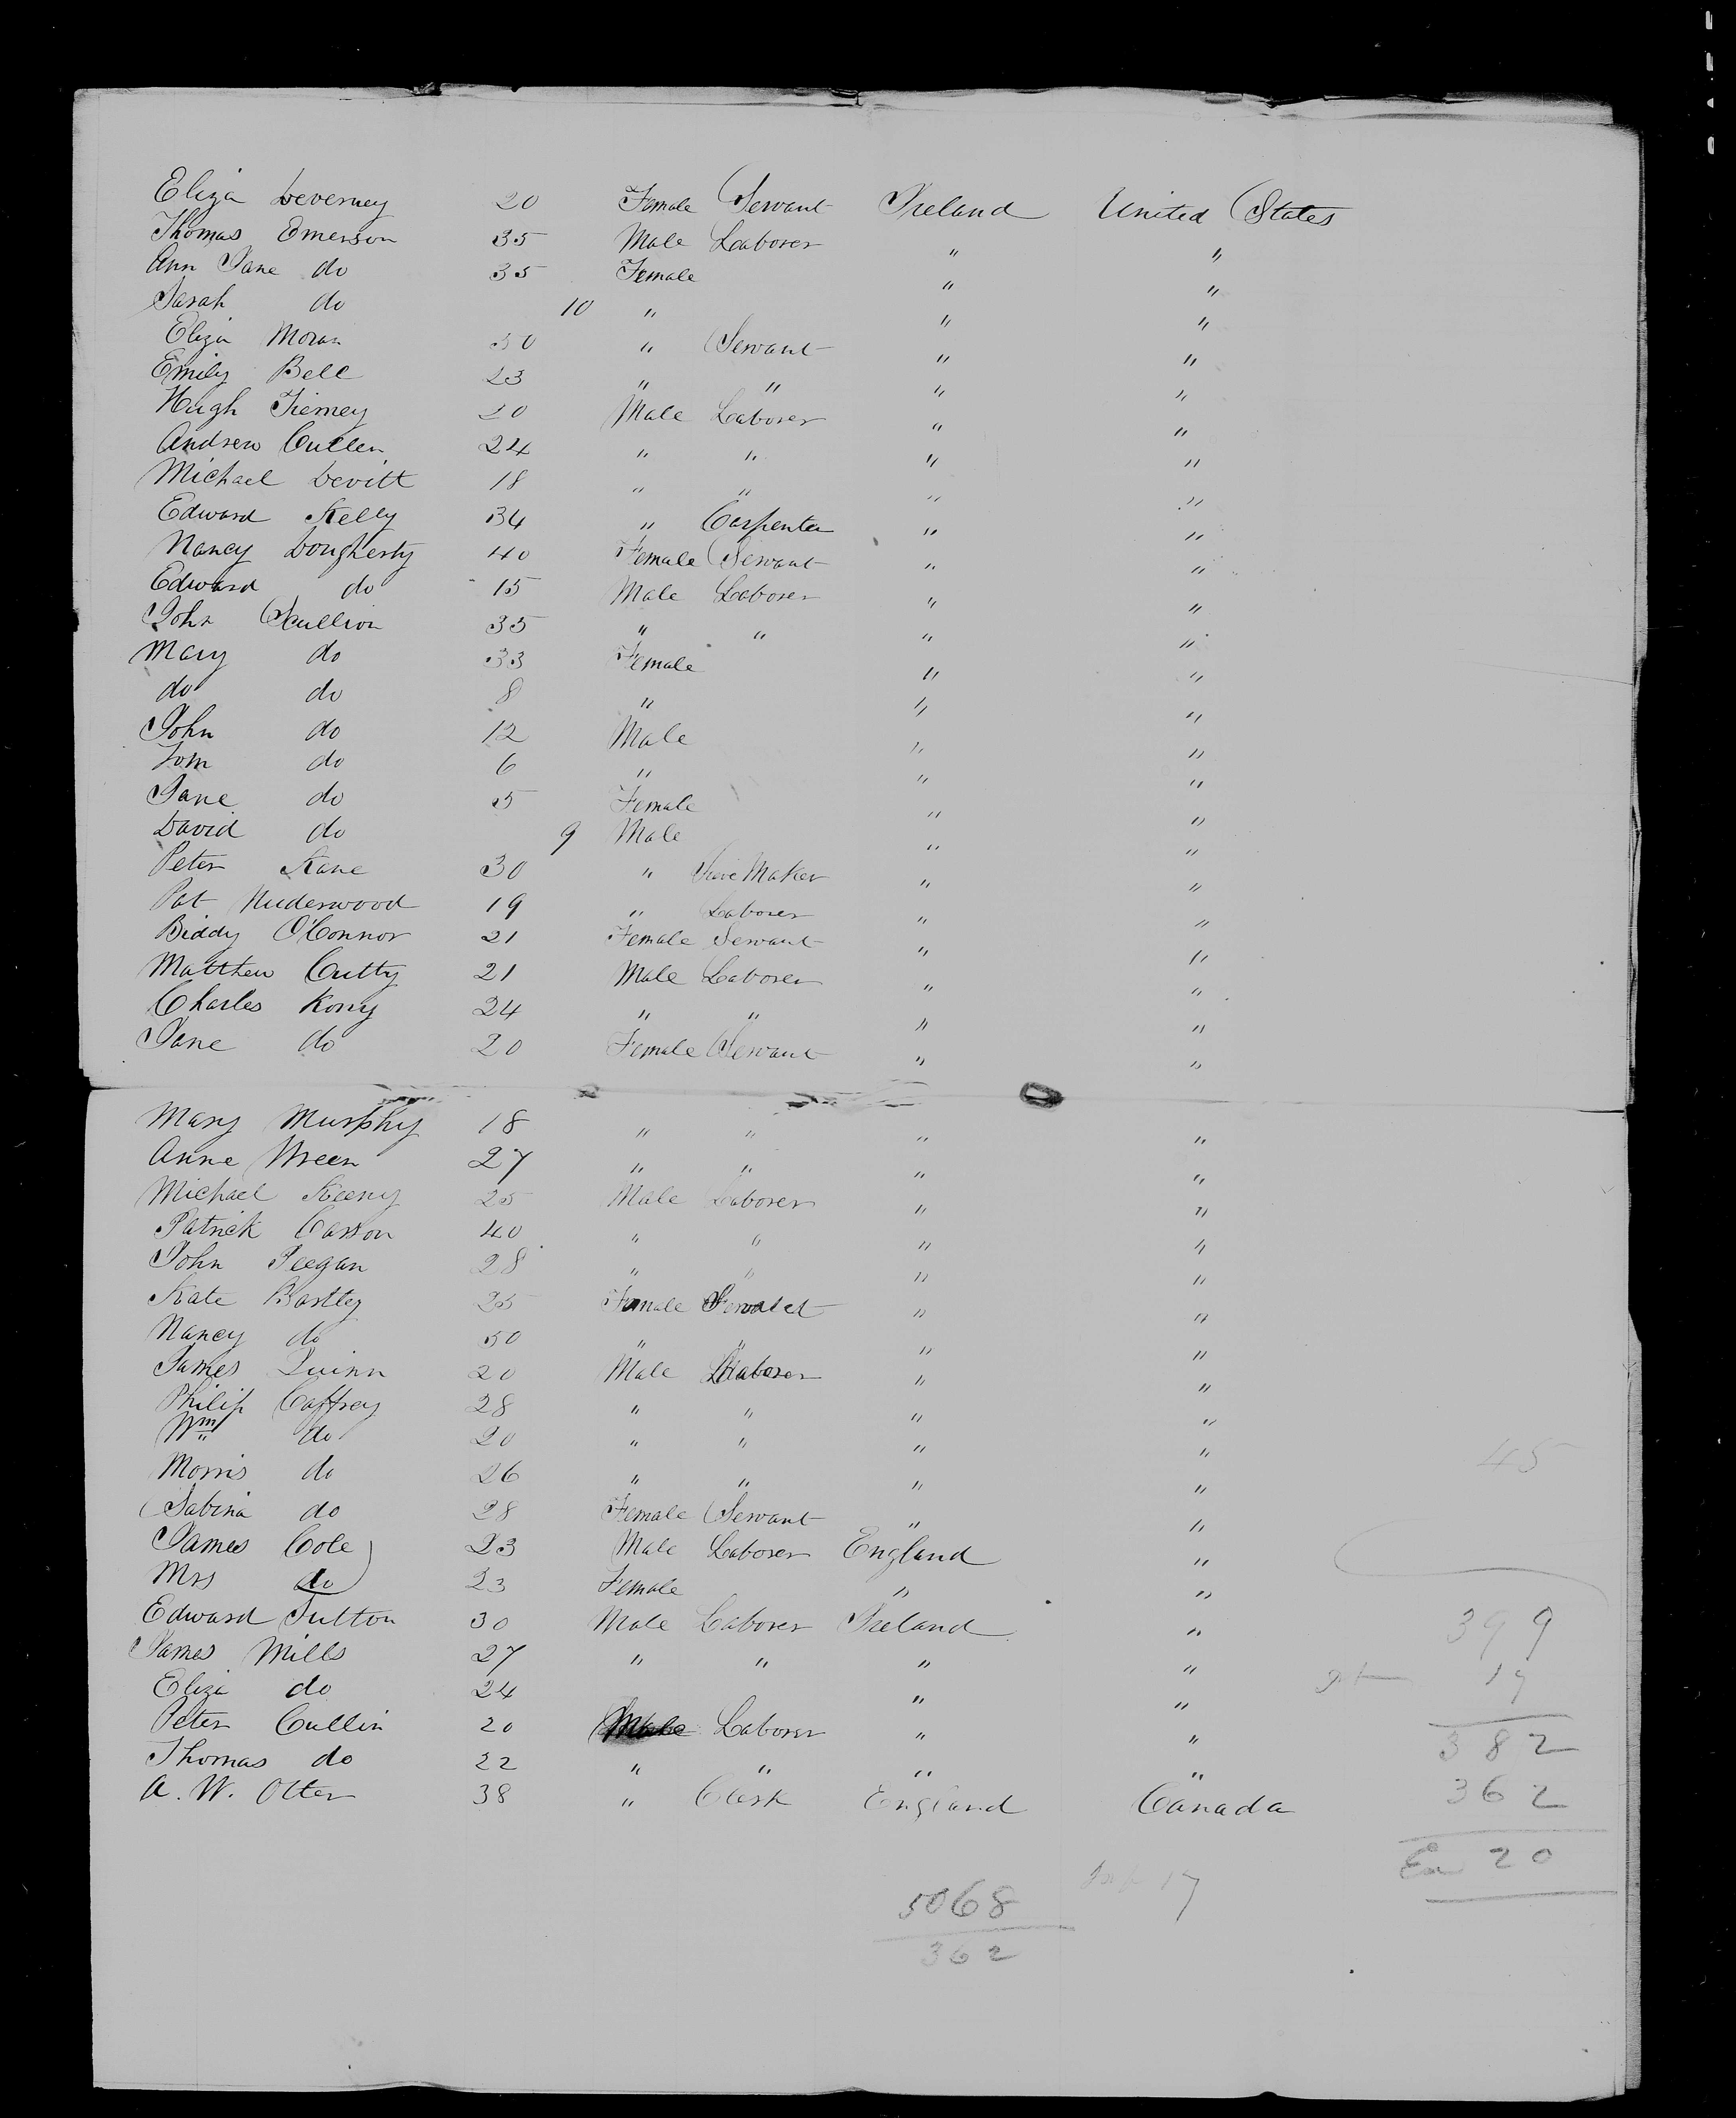 Eliza Deverney 20 Female Servant Ireland United States
Thomas Emerson 35 Male Laborer " "
Ann Jane do 35 Female " "
Sarah do 10 " " "
Eliza Moran 30 " Servant " "
Emily Bell 23 " " " "
Hugh Tierney 20 Male Laborer " "
Andrew Cullen 24 " " " "
Michael Devitt 18 " " " "
Edward Kelly 34 " Carpenter " "
Nancy Dougherty 40 Female Servant " "
Edward do 15 Male Laborer " "
John Scullion 35 " " " "
Mary do 33 Female " "
do do 8 " " "
John do 12 Male " "
Tom do 6 " " "
Jane do 5 Female " "
David do 9 Male " "
Peter Kane 30 " Maker " "
Pat 19 " Laborer " "
Biddy O'Connor 21 Female Servant " "
Matthew Cutty 21 Male Laborer " "
Charles Kony 24 " " " "
Jane do 20 Female Servant " "
Mary Murphy 18 " " " "
Anne Wreen 27 " " " "
Michael Keeny 25 Male Laborer " "
Patrick Carson 40 " " " "
John Keegan 28 " " " "
Kate Bartley 25 Female Servant " "
Nancy do 30 " " " "
James Quinn 20 Male Laborer " "
Philip Caffrey 28 " " " "
Wm do 20 " " " "
Morris do 26 " " " "
45
Sabina do 28 Female Servant " "
James Cole 23 Male Laborer England "
Mrs do 23 Female " "
Edward Sutton 30 Male Laborer Ireland "
399
James Mills 27 " " " "
17
Eliza do 24 " "
Peter Cullin 20 Male Laborer " "
382
Thomas do 22 " " " "
A. W. Otter 38 " Clerk England Canada
362
20
17
5068
362